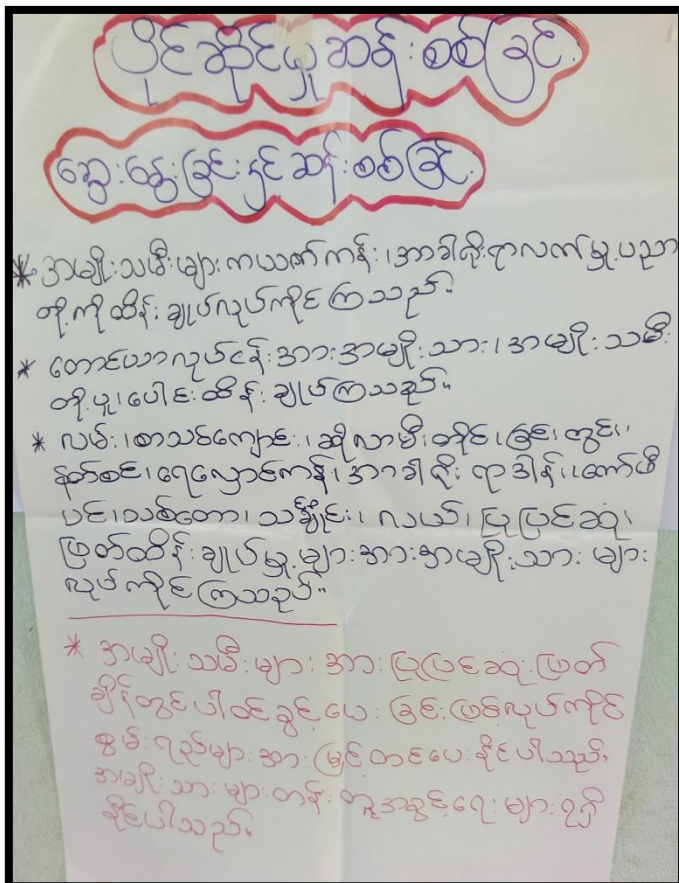 ပိုင်ဆိုင်မှုဆန်းစစ်ခြင်း
ဆွေးနွေးခြင်းနှင့်ဆန်းစစ်ခြင်း
* အမျိုးသမီးများကယက်ကန်း၊ အာခါငိုးရာလက်မှုပညာ
တို့ကိုထိန်းချုပ်လုပ်ကိုင်ကြသည်။
* တောင်ယာလုပ်ငန်းအားအမျိုးသား၊ အမျိုးသမီး
တို့ပူးပေါင်းထိန်းချုပ်ကြသည်။
* လမ်း၊ စာသင်ကျောင်း၊ ဆိုလာမီးတိုင်၊ ခြံ၊ တွင်း၊
နတ်စင်၊ ရေလှောင်ကန်၊ အာခါငိုးရာဒါန်း၊ ကော်ဖီ
ပင်၊ သစ်တော၊ သင်္ချိုင်း၊ လယ်၊ ပြုပြင်ဆုံး
ဖြတ်ထိန်းချုပ်မှုများအားအမျိုးသားများ
လုပ်ကိုင်ကြသည်။
* အမျိုးသမီးများအားပြုပြင်ဆုံးဖြတ်
ချိန်တွင်ပါဝင်ခွင့်ပေးခြင်းဖြစ်လုပ်ကိုင်
စွမ်းရည်များအားမြှင့်တင်ပေးနိုင်ပါသည်။
အမျိုးသားများတန်းတူအခွင့်ရေးများရရှိ
နိုင်ပါသည်။